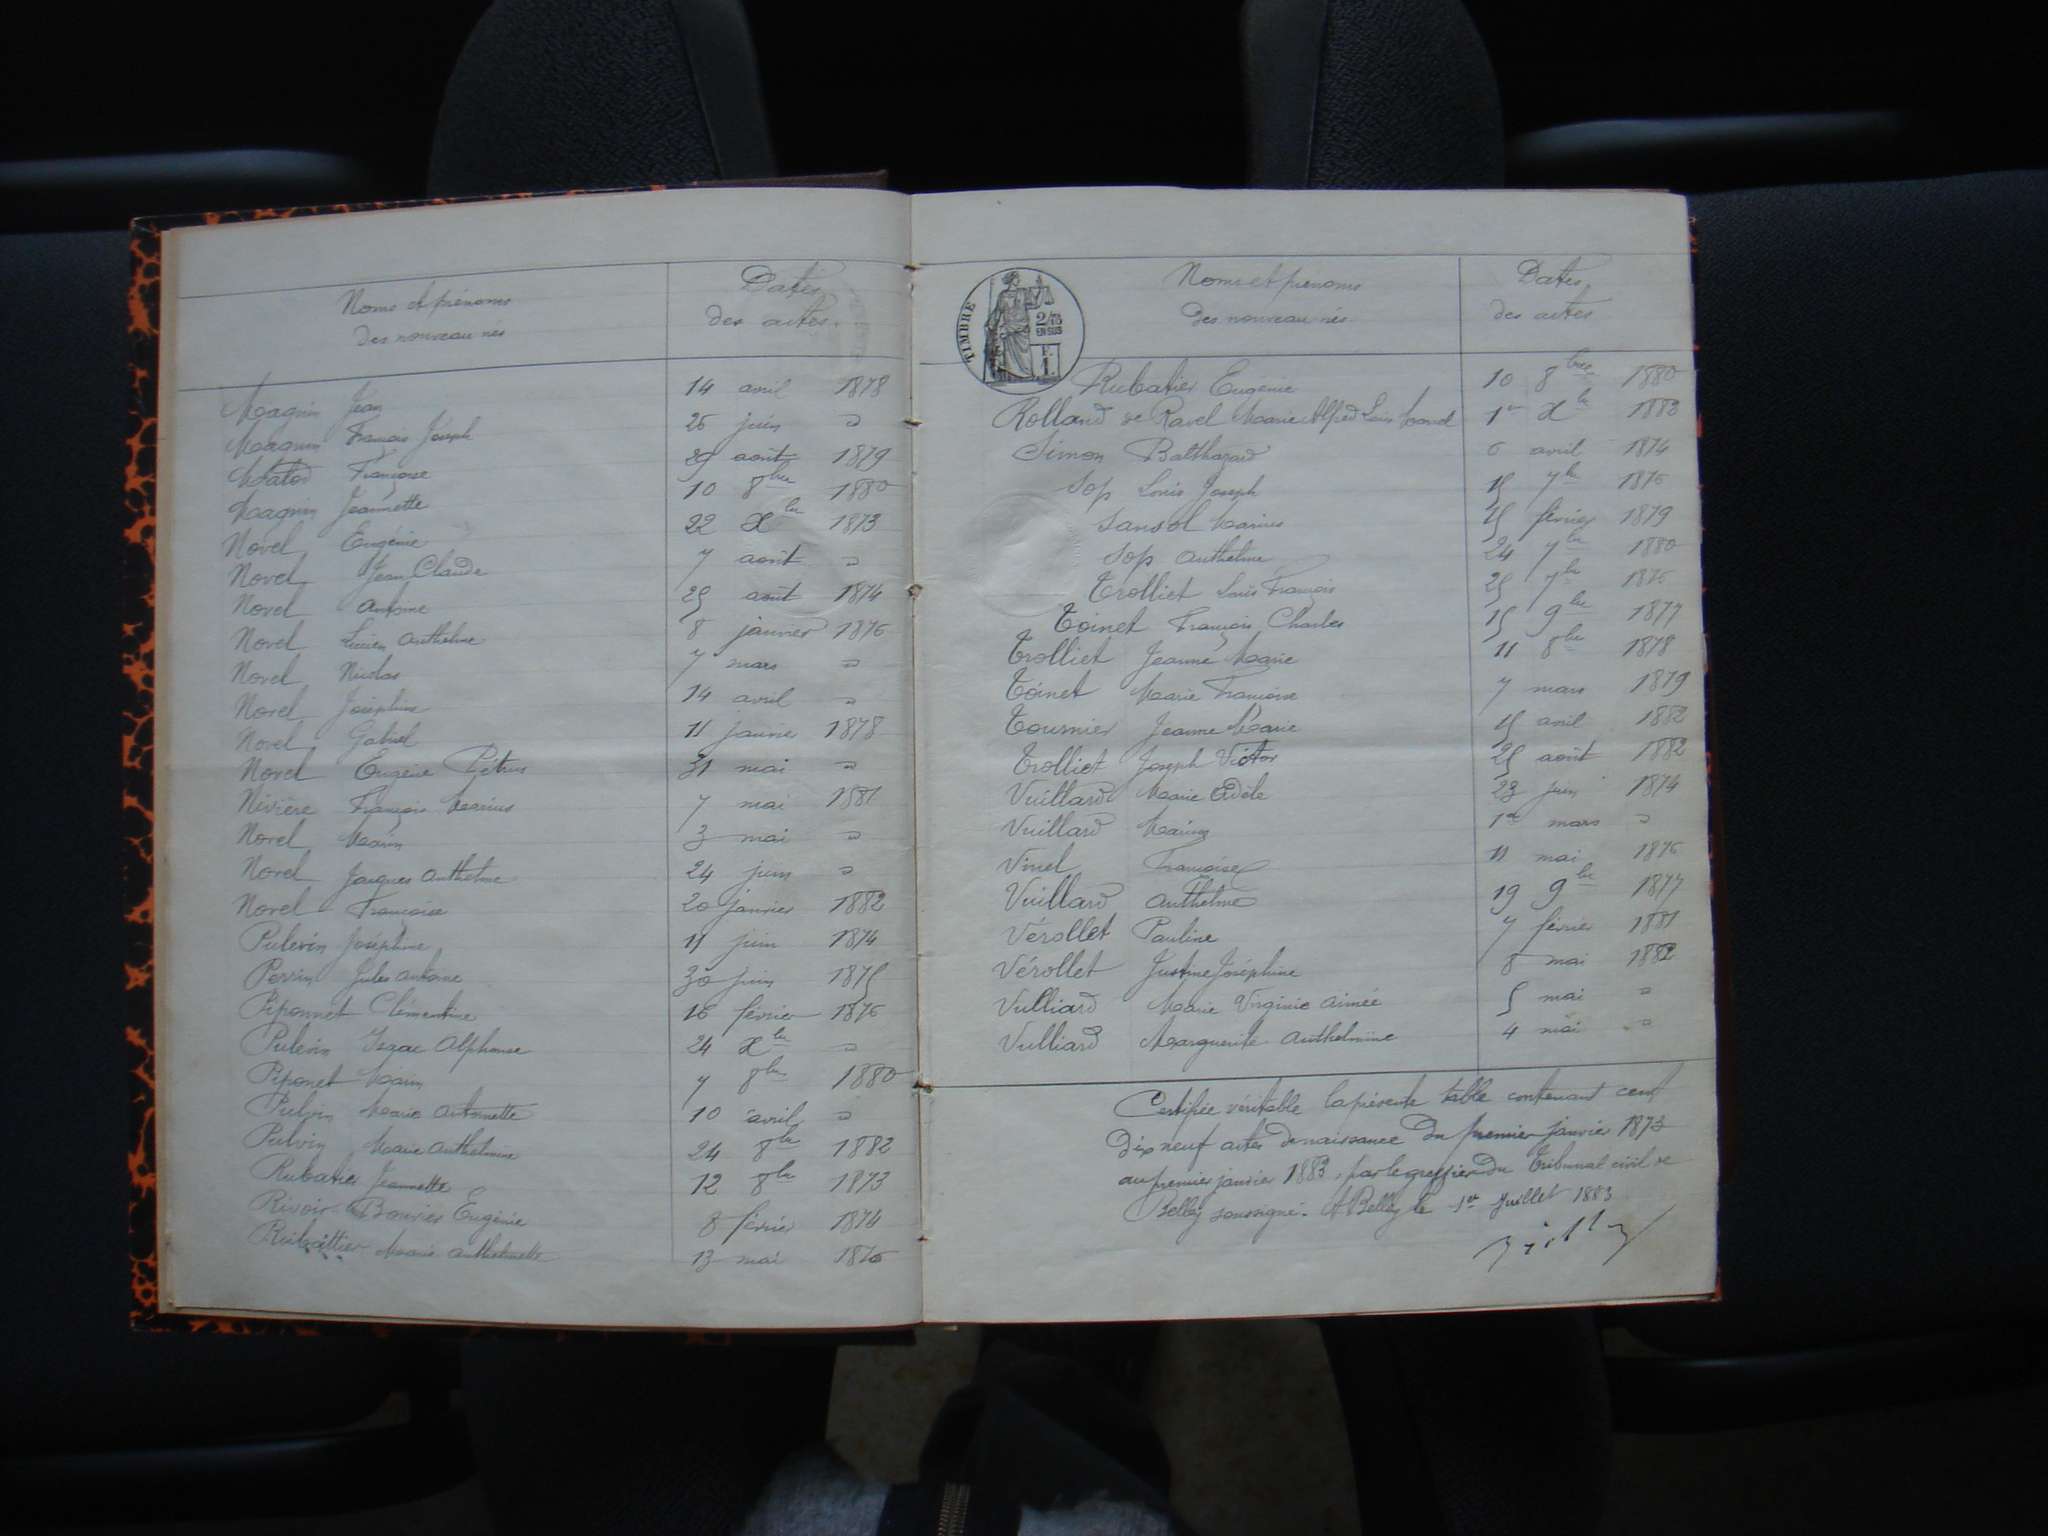 Noms et prénoms
des nouveau nés
Dates
des actes.
Magnin Jean 14 avril 1878
Magnin François Joseph 26 juin "
Matod Françoise 29 août 1879
Magnin Jeannette 10 8bre 1880
Novel Eugénie 22 Xbre 1873
Novel Jean Claude 7 août "
Novel Antoine 25 août 1874
Novel Lucien Anthelme 8 janvier 1876
Novel Nicolas 7 mars "
Novel Joséphine 14 avril "
Novel Gabriel 11 janvier 1878
Novel Eugène Pétrus 31 mai "
Nivière François Marius 7 mai 1881
Novel Marin 3 mai "
Novel Jacques Anthelme 24 juin "
Novel Françoise 20 janvier 1882
Pulevin Joséphine 11 juin 1874
Perrin Jules Antoine 30 juin 1875
Piponnet Clémentine 16 février 1876
Pulevin Isaac Alphonse 24 Xbre "
Piponet Marin 7 8bre 1880
Pulvin Marie Antoinette 10 avril "
Pulvin Marie Anthelmine 24 8bre 1882
Rubatier Jeannette 12 8bre 1873
Rivoir-Bouvier Eugénie 8 février 1874
Rubattier Marie Anthelmette 13 mai 1876
TIMBRE
2/10
EN SUS
F.
1.
Noms et prénoms
des nouveau nés
Dates
des actes
Rubatier Eugénie 10 8bre 1880
Rolland de Ravel Marie Alfred Louis Marcel 1er Xbre 1882
Simon Balthazard 6 avril 1874
Sop Louis Joseph 15 7bre 1876
Sansol Marius 15 février 1879
Sop Anthelme 24 7bre 1880
Trolliet Louis François 25 7bre 1876
Toinet François Charles 15 9bre 1877
Trolliet Jeanne Marie 11 8bre 1878
Toinet Marie Françoise 7 mars 1879
Tournier Jeanne Marie 15 avril 1882
Trolliet Joseph Victor 25 août 1882
Vuillard Marie Adèle 23 juin 1874
Vuillard Marius 1er mars "
Vinel Françoise 11 mai 1876
Vuillard Anthelme 19 9bre 1877
Vérollet Pauline 7 février 1881
Vérollet Justine Joséphine 8 mai 1882
Vulliard Marie Virginie Aimée 5 mai "
Vulliard Marguerite Anthelmine 4 mai "
Certifiée véritable la présente table contenant cent
dix neuf actes de naissance du premier janvier 1873
au premier janvier 1883, par le greffier du Tribunal civil de
Belley soussigné. A Belley le 1er Juillet 1883